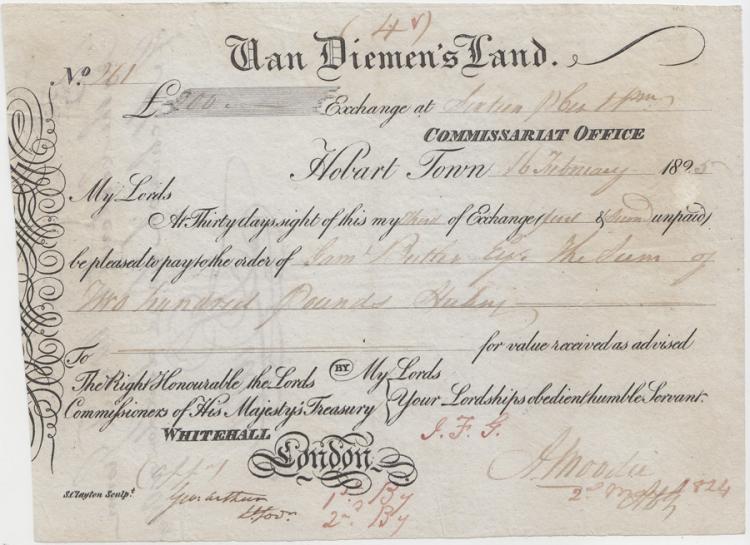 (4)
Van Diemen's Land.
No. 261
£ 200
Exchange at Sixteen P Cent Prem
COMMISSARIAT OFFICE
Hobart Town 16 February 1825
My Lords
At Thirty days sight of this my third of Exchange (first & Second unpaid)
be pleased to pay to the order of Saml Butler Esqr The Sum of
Two hundred Pounds Sterling
for value received as advised
To
The Right Honourable the Lords BY My Lords
Commissioners of His Majesty's Treasury Your Lordships obedient humble Servant.
WHITEHALL
J. F. G.
London
A Moodie
S. Clayton Sculpt.
Geo Arthur
Lt Gov.
1st By
2nd By
1824